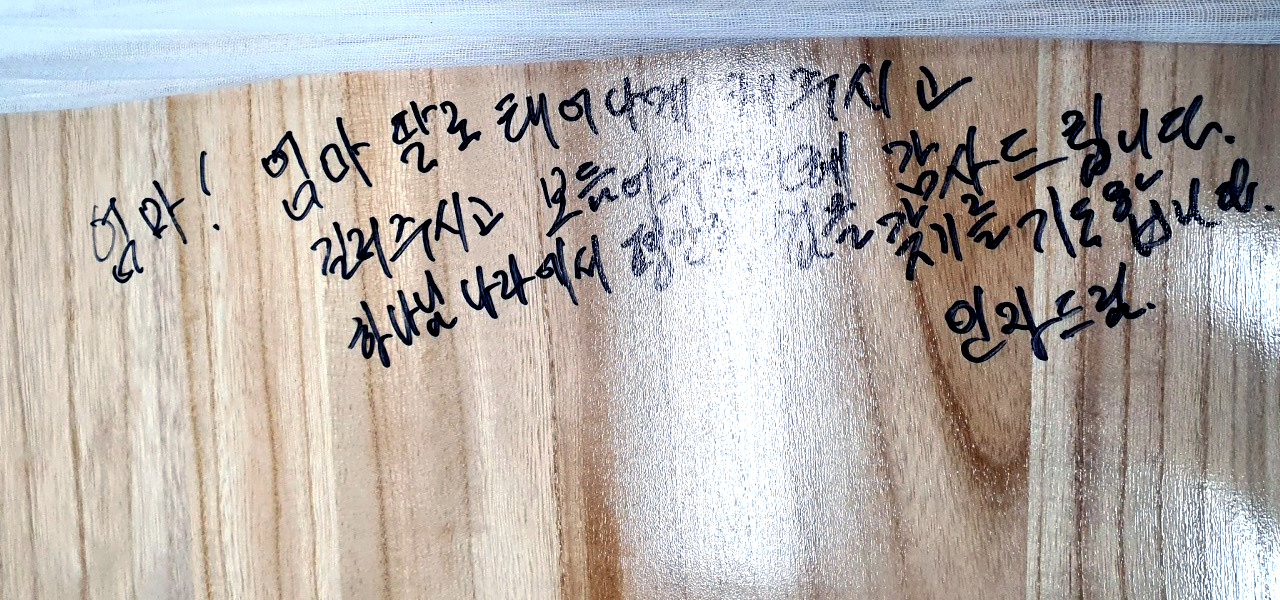 엄마! 엄마 딸로 태어나게 해 주시고
길러주시고 보듬어주신 감사드립니다.
하나님 나라에서 평안 을 갖기를 기도합니다.
인자드림.